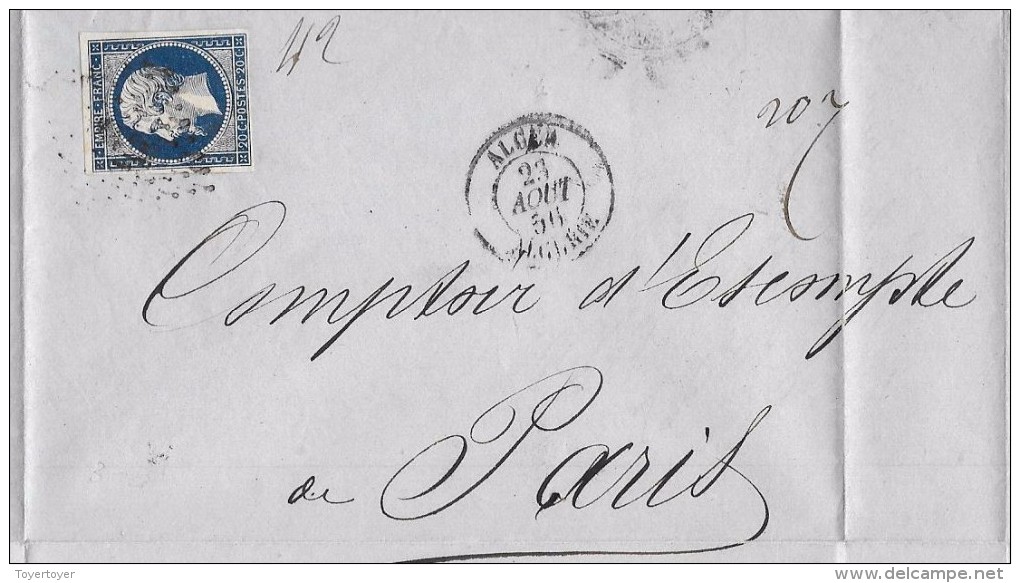 EMPIRE FRANC.
20 C. POSTES 20 C.
42
207
ALGER
23
AOUT
56
ALGERIE
Comptoir d'Escompte
de Paris
Toyertoyer
http://www.delcampe.net